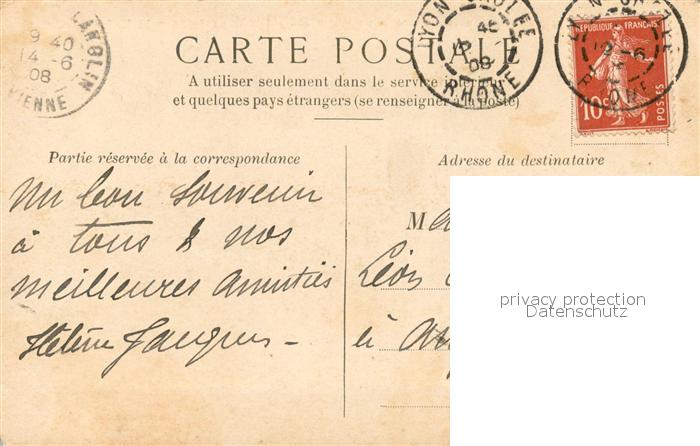 9 40
14 -6
08
VIENNE
CARTE POSTALE
A utiliser seulement dans le service intérieur
et quelques pays étrangers (se renseigner à la poste)
RHÔNE
08
REPUBLIQUE FRANÇAISE
10c
POSTES
Partie réservée à la correspondance
Adresse du destinataire
un bon souvenir
à tous & nos
meilleures amitiés
Hélène Jacques -
M
Léon
à
privacy protection
Datenschutz